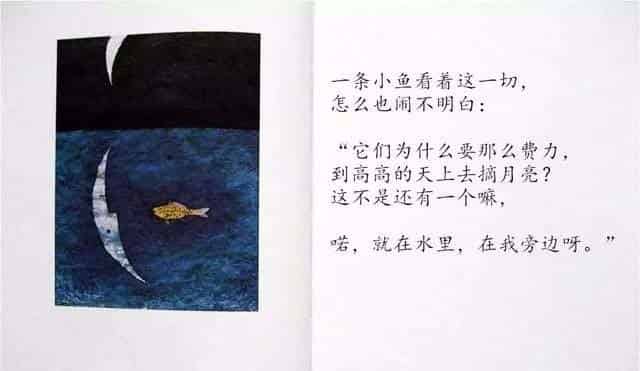 一条小鱼看着这一切，
怎么也闹不明白：
“它们为什么要那么费力，
到高高的天上去摘月亮？
这不是还有一个嘛，
喏，就在水里，在我旁边呀。”